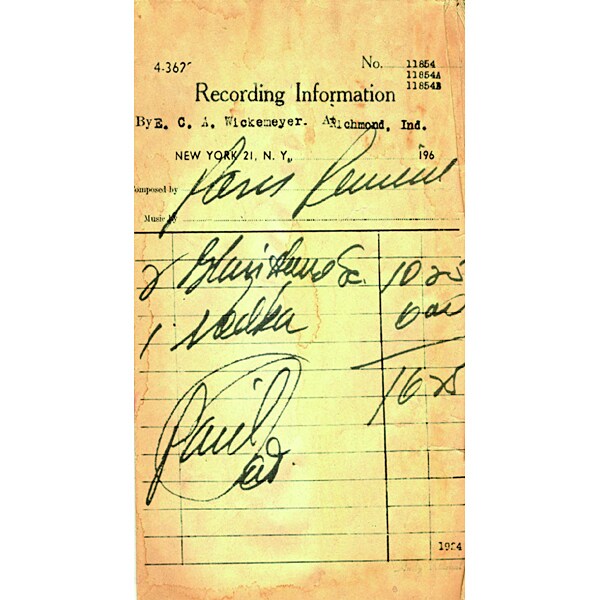 4-367
No. 11854
11854A
11854B
Recording Information
By E. C. A. Wickemeyer. At Richmond, Ind.
NEW YORK 21, N. Y. 196
Composed by Paris
Music by
2 10 25
1 Vodka 6 00
16 25
Paid
1924